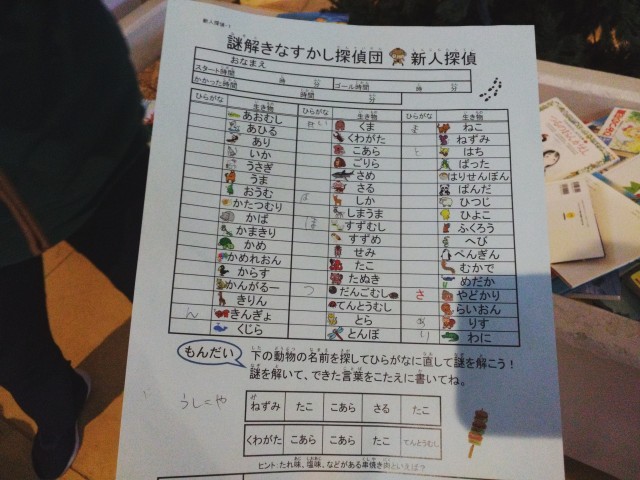 新人探偵-1
謎解きなすかし探偵団 新人探偵
おなまえ
スタート時間 時 分 ゴール時間 時 分
かかった時間 時間 分
ひらがな 生き物 ひらがな 生き物 ひらがな 生き物
あおむし くま ま ねこ
あひる くわがた ねずみ
あり こあら と はち
いか ごりら ばった
うさぎ さめ はりせんぼん
うま さる ぱんだ
おうむ しか ひつじ
かたつむり しまうま ひよこ
かば すずむし ふくろう
かまきり すずめ へび
かめ せみ ぺんぎん
かめれおん たこ むかで
からす たぬき めだか
かんがるー つ だんごむし さ やどかり
きりん てんとうむし らいおん
ん きんぎょ とら りす
くじら とんぼ り わに
もんだい 下の動物の名前を探してひらがなに直して謎を解こう!
謎を解いて、できた言葉をこたえに書いてね。
ねずみ たこ こあら さる たこ
くわがた こあら こあら たこ てんとうむし
ヒント:たれ味、塩味、などがある串焼き肉といえば?